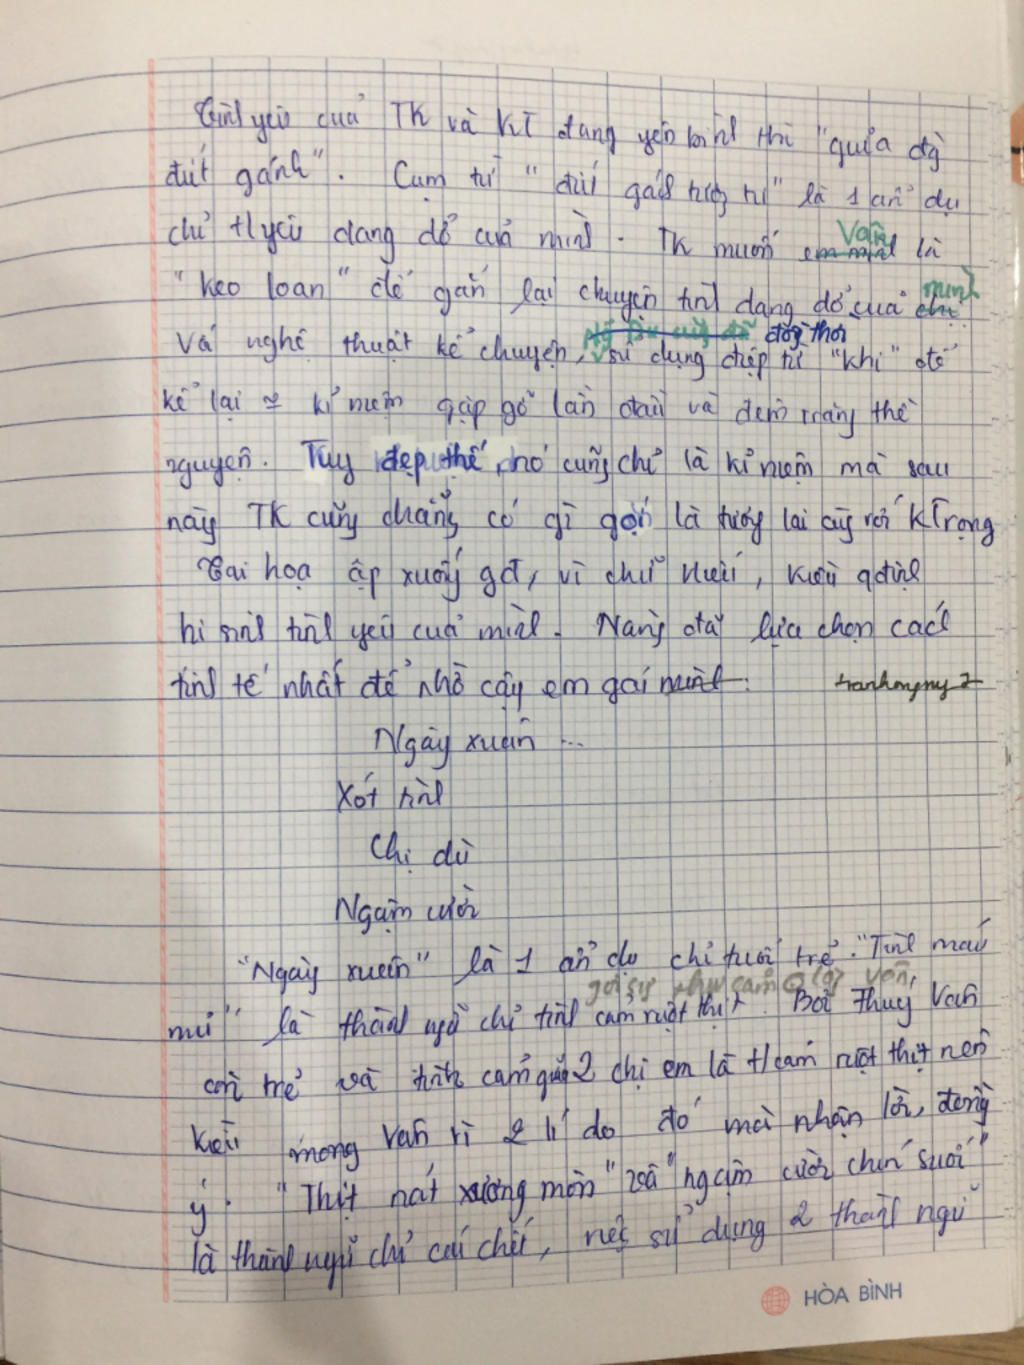 Tình yêu của TK và KT đang yên bình thì "giữa đg
đứt gánh". Cụm từ "đứt gánh tương tư" là 1 ẩn dụ
chỉ t/yêu dang dở của mình. TK muốn em mình Vân là
"keo loan" để gắn lại chuyện tình dang dở của chị mình
Vs nghệ thuật kể chuyện, đồng thời sử dụng điệp từ "khi" để
kể lại 2 kỉ niệm gặp gỡ lần đầu và đêm trăng thề
nguyện. Tuy đẹp thế nhó cũng chỉ là kỉ niệm mà sau
này TK cũng chẳng có gì gọi là tương lai cùng với KTrọng
Tai hoạ ập xuống gđ, vì chữ hiếu, Kiều qđịnh
hi sinh tình yêu của mình. Nàng đã lựa chọn cách
tinh tế nhất để nhờ cậy em gái mình.
Ngày xuân ...
Xót tình
Chị dù
Ngậm cười
"Ngày xuân" là 1 ẩn dụ chỉ tuổi trẻ. "Tình máu
gợi sự
mủ" là thành ngữ chỉ tình cảm ruột thịt. Bởi Thuý Vân
còn trẻ và tình cảm giữa 2 chị em là t/cảm ruột thịt nên
Kiều mong Vân vì 2 lí do đó mà nhận lời, đồng
ý. "Thịt nát xương mòn" và "ngậm cười chín suối"
là thành ngữ chỉ cái chết, sử dụng 2 thành ngữ
HÒA BÌNH